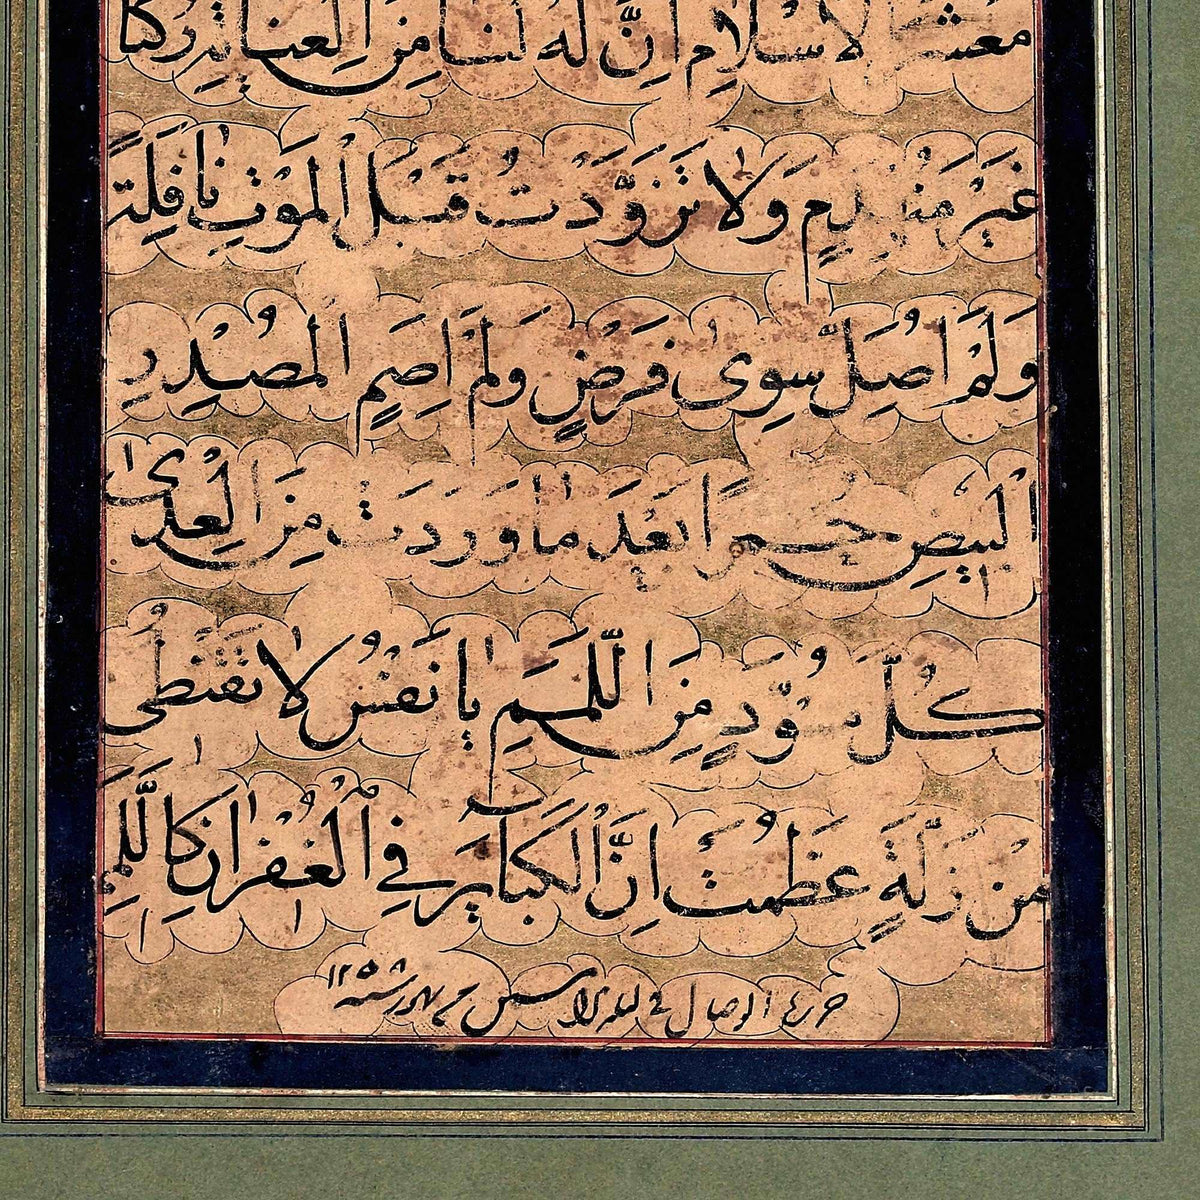 مَعْشَرَ الْاِسْلَامِ اِنَّ لَهُ لَنَا مِنَ الْعِنَايَةِ رُكْنًا
غَيْرَ مُنْهَدِمٍ وَلَا تَزَوَّدْتُ قَبْلَ الْمَوْتِ نَافِلَةً
وَلَمْ اُصَلِّ سِوٰى فَرْضٍ وَلَمْ اَصِمٍ الْمُصْدِرِ
الْبِيْضِ حُمْرًا بَعْدَ مَا وَرَدَتْ مِنَ الْعِدٰى
كُلَّ مُسْوَدٍّ مِنَ اللَّمَمِ يَا نَفْسُ لَا تَقْنَطِى
مِنْ زَلَّةٍ عَظُمَتْ اِنَّ الْكَبَائِرَ فِي الْغُفْرَانِ كَاللَّمَمِ
حرره الوصال فى ليلة ١٢٥